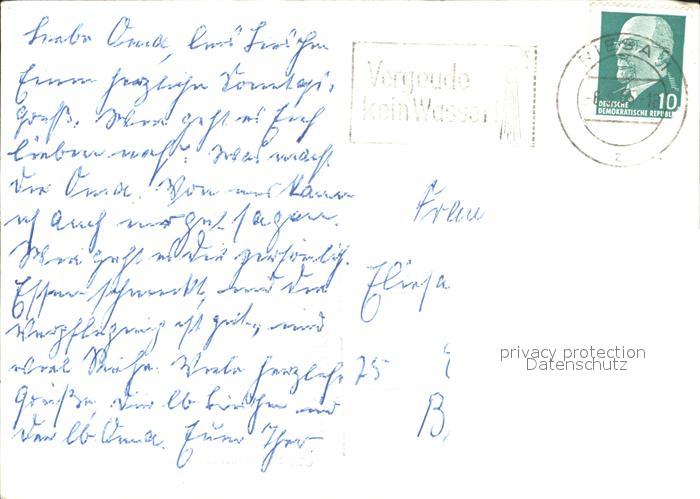 Liebe Oma,
Einen herzlichen Sonntags-
gruß. Wie geht es Euch
lieben noch? Was macht
die Oma. Von uns kann
ich auch nur gut sagen.
Wie geht es Dir persönlich.
Essen schmeckt, und die
Verpflegung ist gut, und
viel Ruhe. Viele herzliche
Grüße, Dir lb und
der lb Oma. Euer
Vergeude
kein Wasser
10
DEUTSCHE
DEMOKRATISCHE REPUBL
Frau
Elisa
75
B
privacy protection
Datenschutz